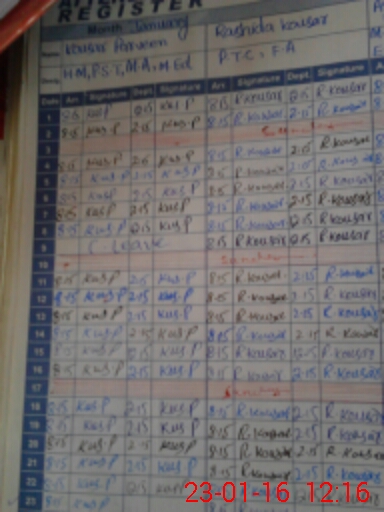 REGISTER
Month January
Kousar Parveen Rashida Kousar
Name
HM, P.S.T, M.A, M.Ed P.T.C, F.A
Date Arr. Signature Dept. Signature Arr. Signature Dept. Signature
1 8:15 Kus P 2:15 Kus P 8:15 R.Kousar 2:15 R.Kousar
2 8:15 Kus P 2:15 Kus P 8:15 R.Kousar 2:15 R.Kousar
3 Sunday
4 8:15 Kus P 2:15 Kus P 8:15 R.Kousar 2:15 R.Kousar
5 8:15 Kus P 2:15 Kus P 8:15 R.Kousar 2:15 R.Kousar
6 8:15 Kus P 2:15 Kus P 8:15 R.Kousar 2:15 R.Kousar
7 8:15 Kus P 2:15 Kus P 8:15 R.Kousar 2:15 R.Kousar
8 8:15 Kus P 2:15 Kus P 8:15 R.Kousar 2:15 R.Kousar
9 C. Leave 8:15 R.Kousar 2:15 R.Kousar
10 Sunday
11 8:15 Kus P 2:15 Kus P 8:15 R.Kousar 2:15 R.Kousar
12 8:15 Kus P 2:15 Kus P 8:15 R.Kousar 2:15 R.Kousar
13 8:15 Kus P 2:15 Kus P 8:15 R.Kousar 2:15 R.Kousar
14 8:15 Kus P 2:15 Kus P 8:15 R.Kousar 2:15 R.Kousar
15 8:15 Kus P 2:15 Kus P 8:15 R.Kousar 2:15 R.Kousar
16 8:15 Kus P 2:15 Kus P 8:15 R.Kousar 2:15 R.Kousar
17 Sunday
18 8:15 Kus P 2:15 Kus P 8:15 R.Kousar 2:15 R.Kousar
19 8:15 Kus P 2:15 Kus P 8:15 R.Kousar 2:15 R.Kousar
20 8:15 Kus P 2:15 Kus P 8:15 R.Kousar 2:15 R.Kousar
21 8:15 Kus P 2:15 Kus P 8:15 R.Kousar 2:15 R.Kousar
22 8:15 Kus P 2:15 Kus P 8:15 R.Kousar 2:15 R.Kousar
23 8:15 Kus P
23-01-16 12:16